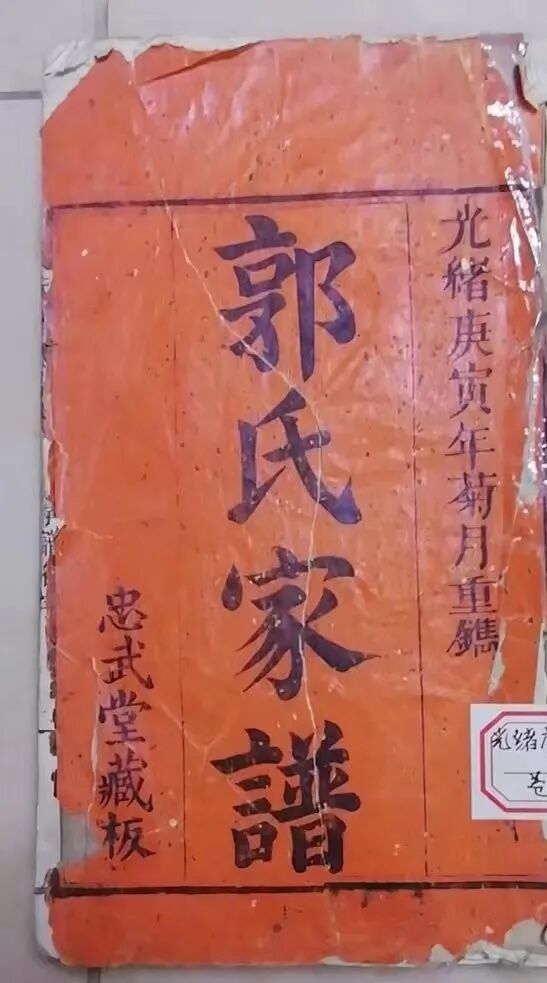 光緒庚寅年菊月重鐫
郭氏家譜
忠武堂藏板
光绪